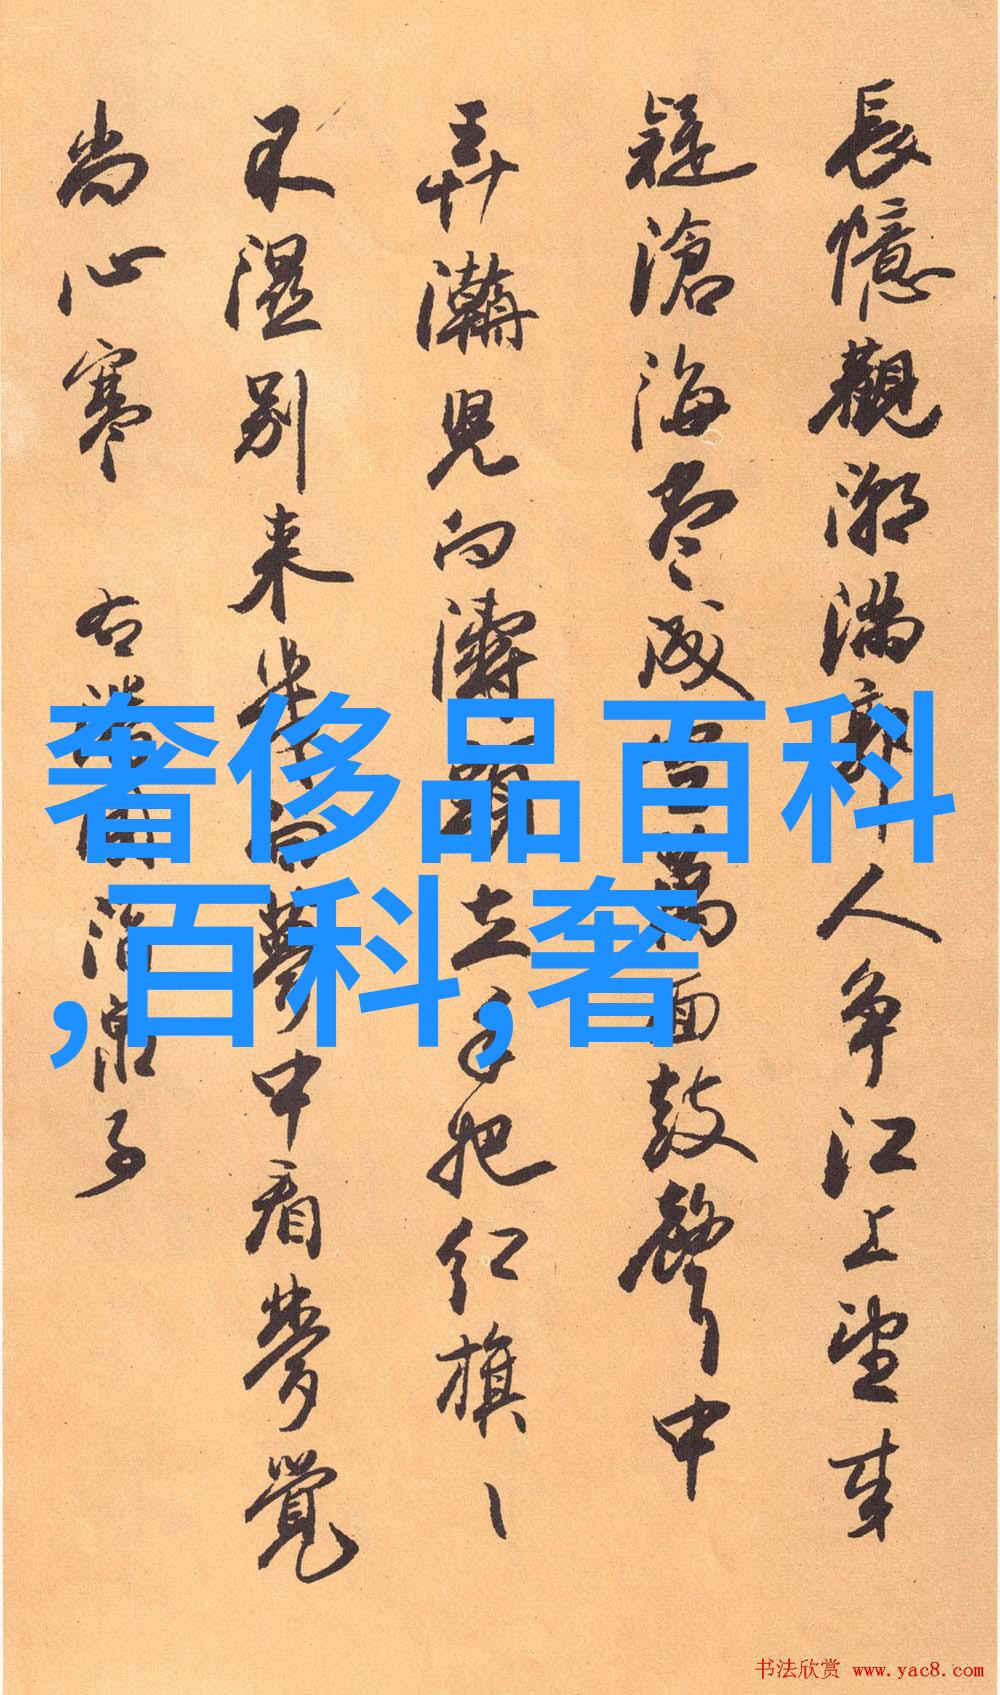 長憶觀潮滿郭人争江上望来
疑滄海盡成空萬面鼓聲中
弄潮兒向濤頭立手把红旗、
不濕别来幾向夢中看夢覺
尚心寒 右潘阆酒泉子
奢侈品百科
,百科,奢
书法欣赏 www.yac8.com